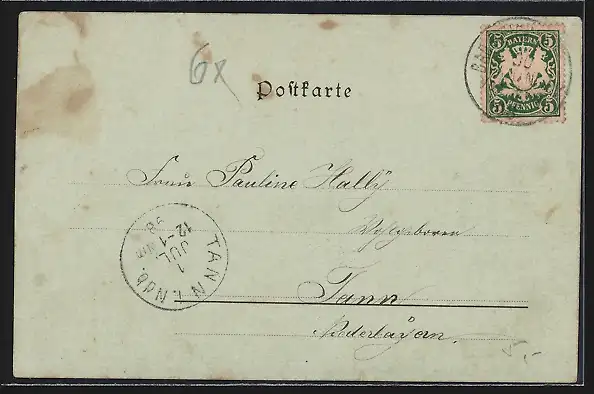 6x
Postkarte
5 BAYERN 5
5 PFENNIG 5
30 JUN
Frau Pauline Hally
Wohlgeboren
Tann
Niederbayern.
TANN i. Ndb.
1 JUL
12-1 Nm
98
5.-